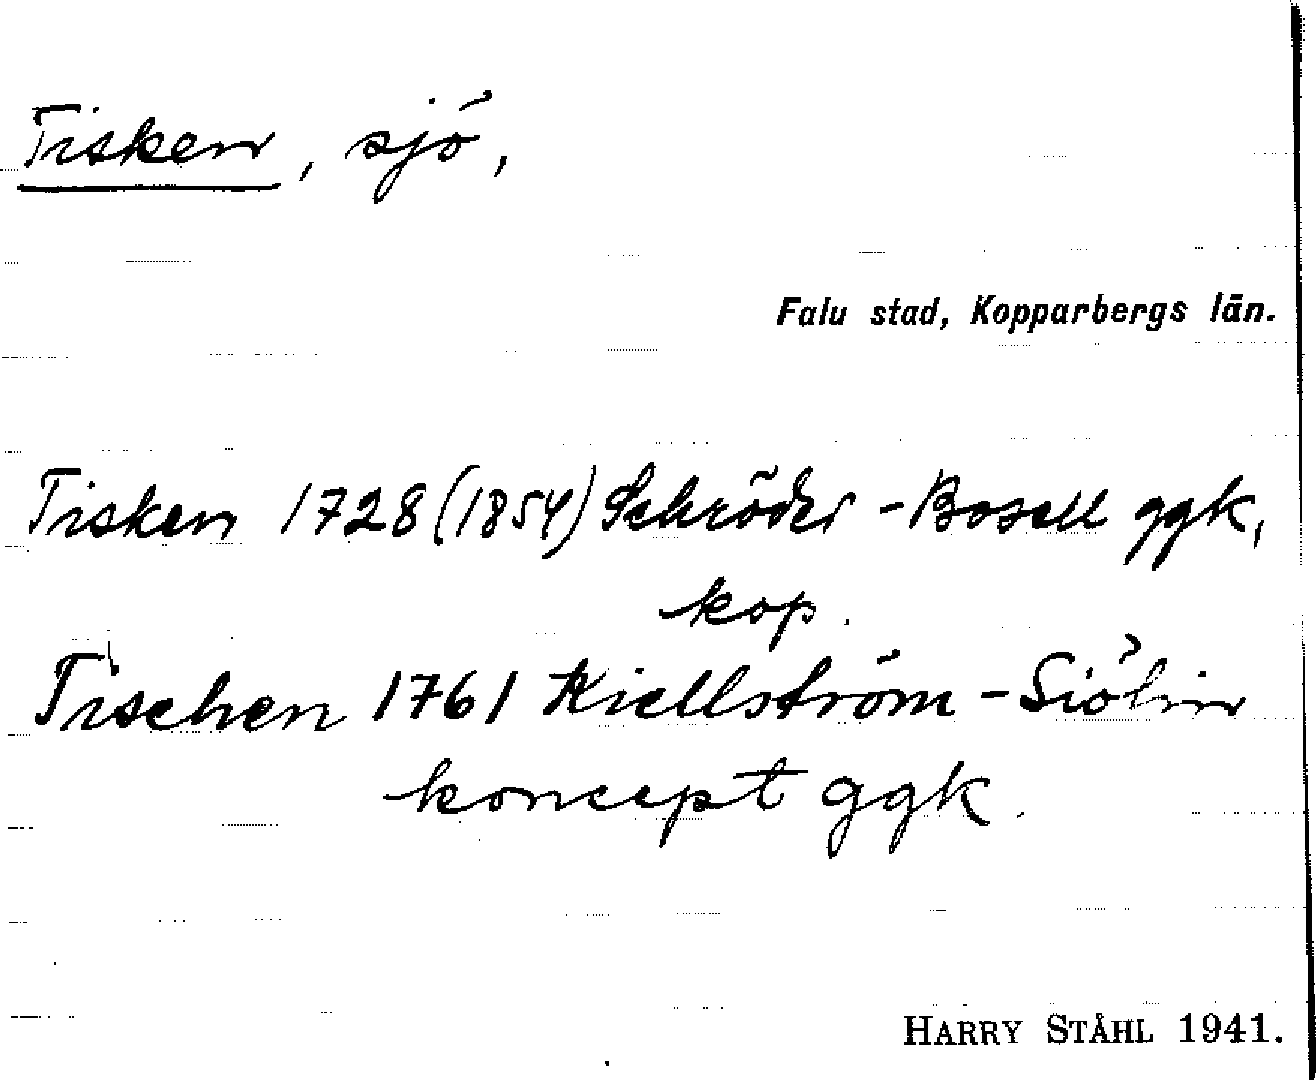 Tisken, sjö,
Falu stad, Kopparbergs län.
Tisken 1728 (1854) Schröder - Bosell ggk,
kop.
Tischen 1761 Kiellström - Siöhin
koncept ggk.
HARRY STÅHL 1941.